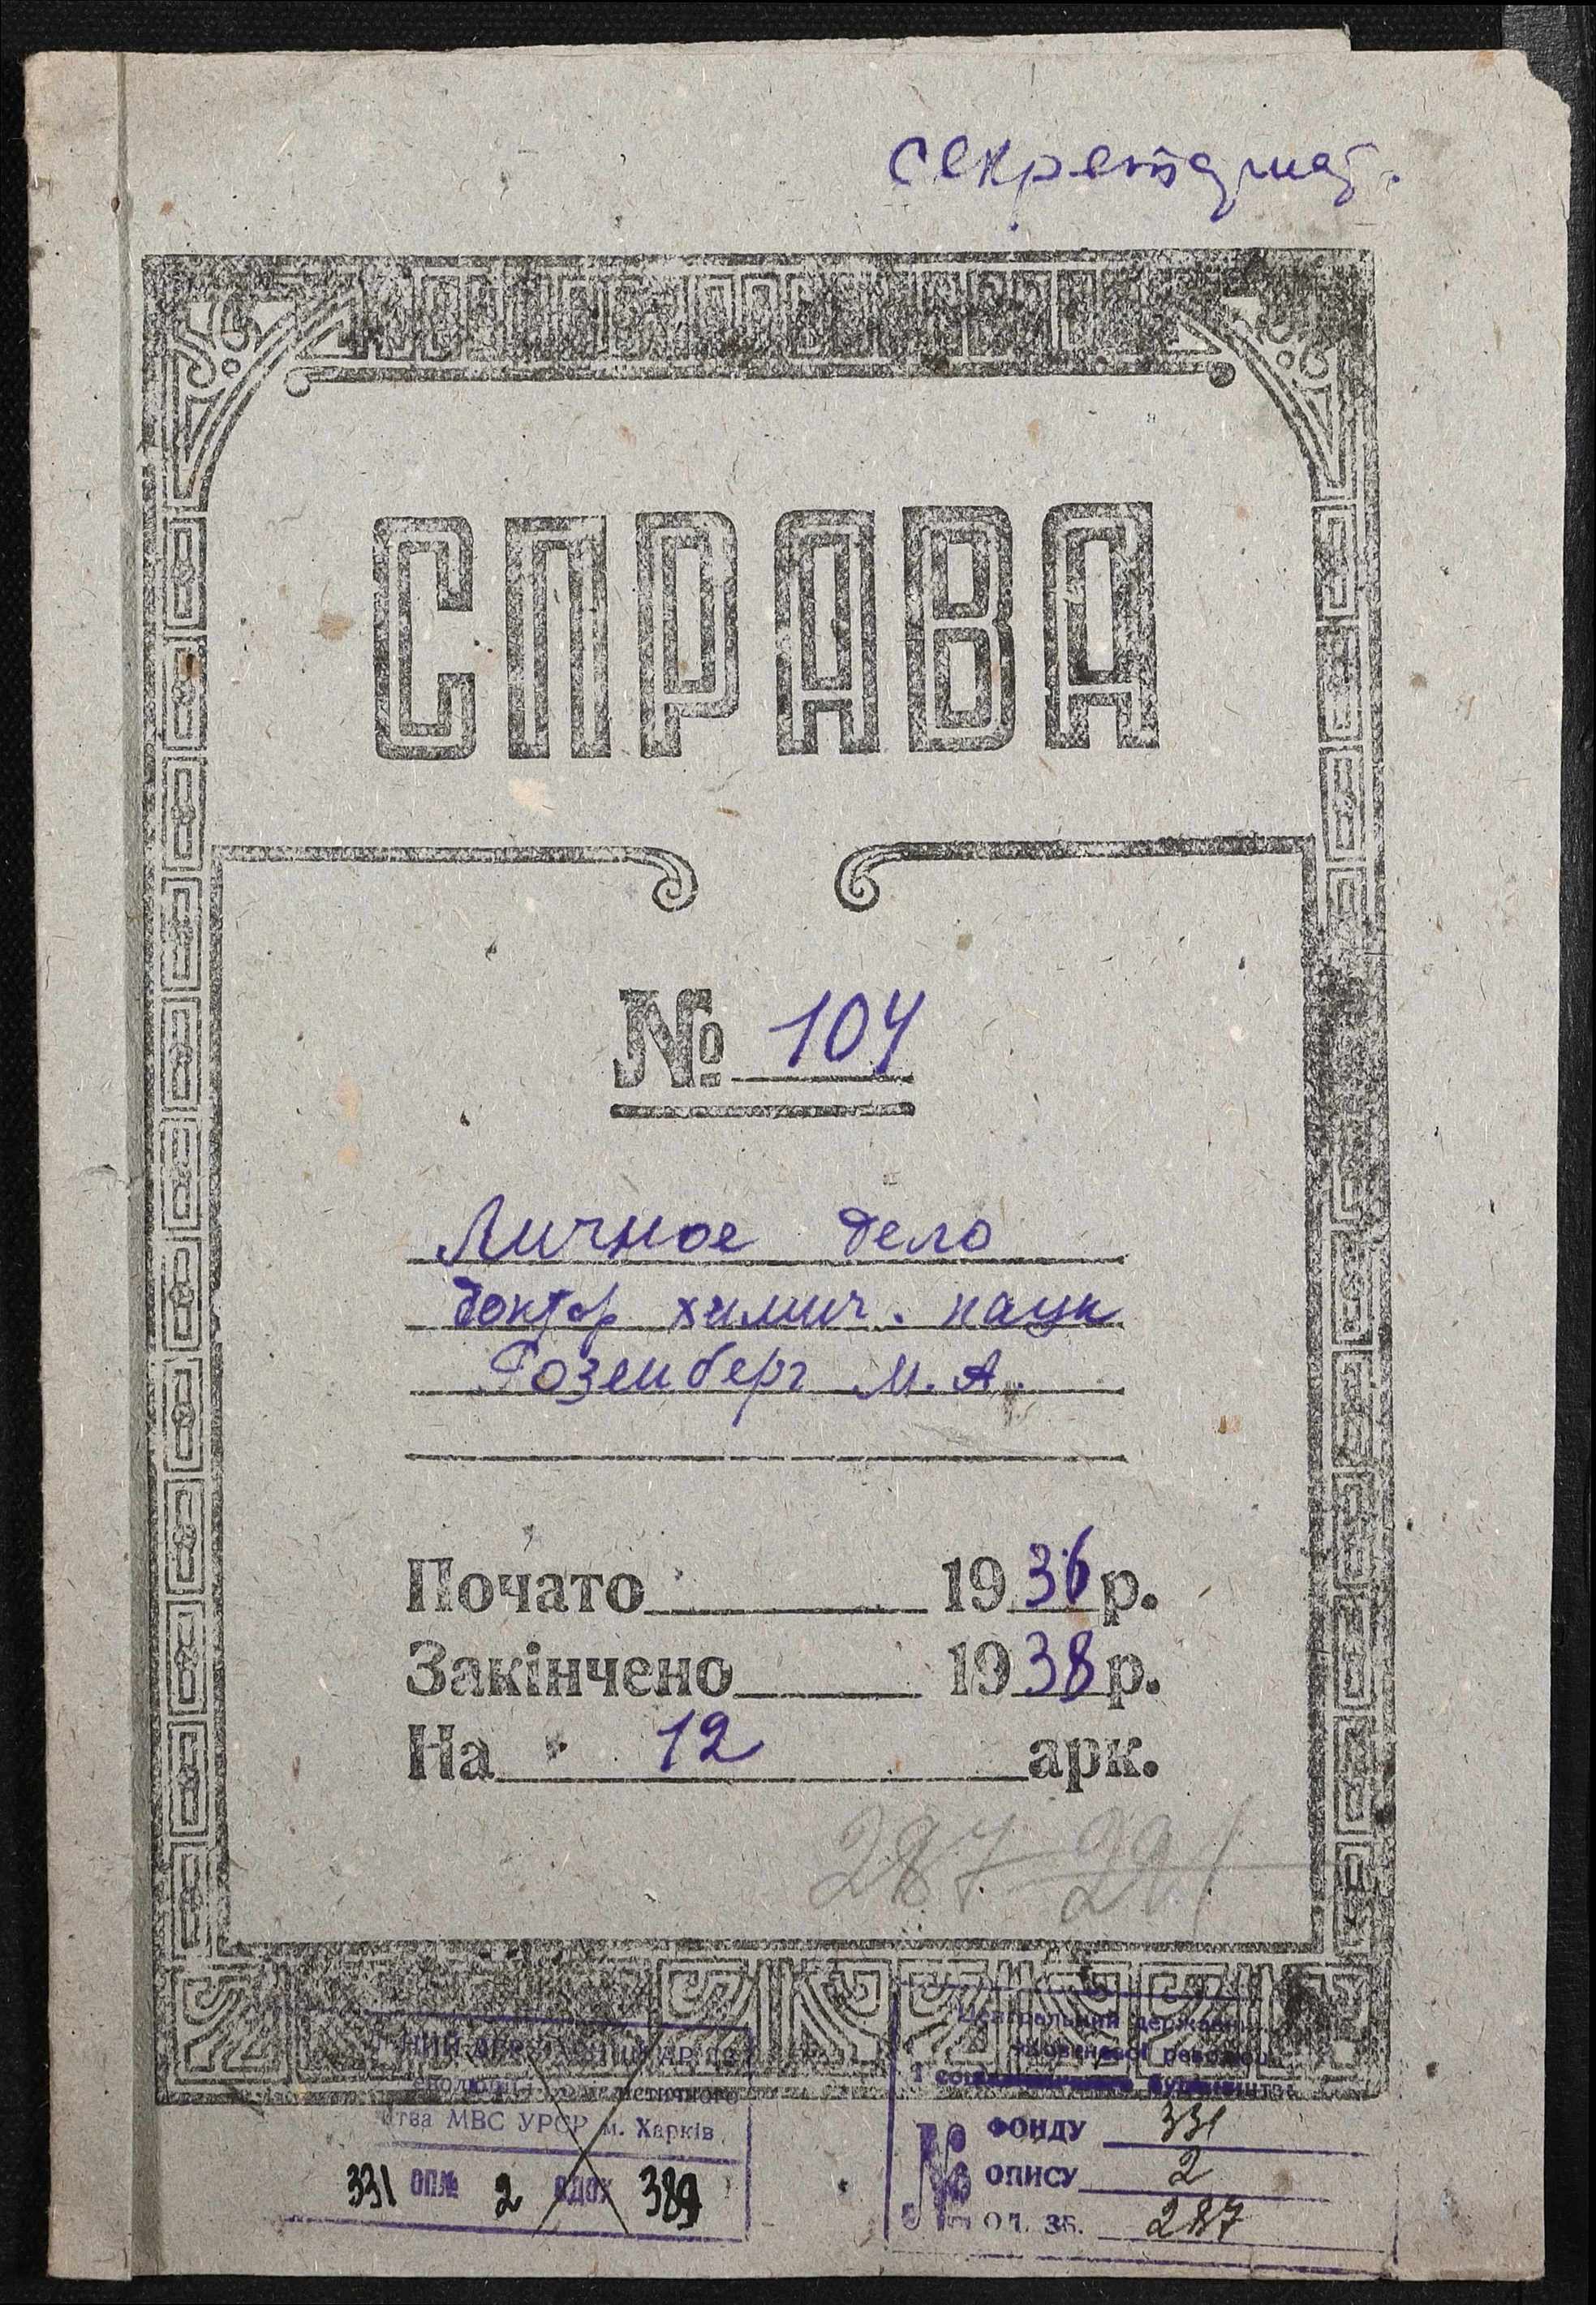 секретариат.
СПРАВА
№ 104
Личное дело
доктор химич. наук
Розенберг М. А.
Почато 1936 р.
Закінчено 1938 р.
На 12 арк.
287 291
тва МВС УРСР м. Харків
331 ОП№ 2 ОДОХ 389
Центральний державний
Жовтневої революції
і соціалістичного будівництва
№ ФОНДУ 331
ОПИСУ 2
од. зб. 287